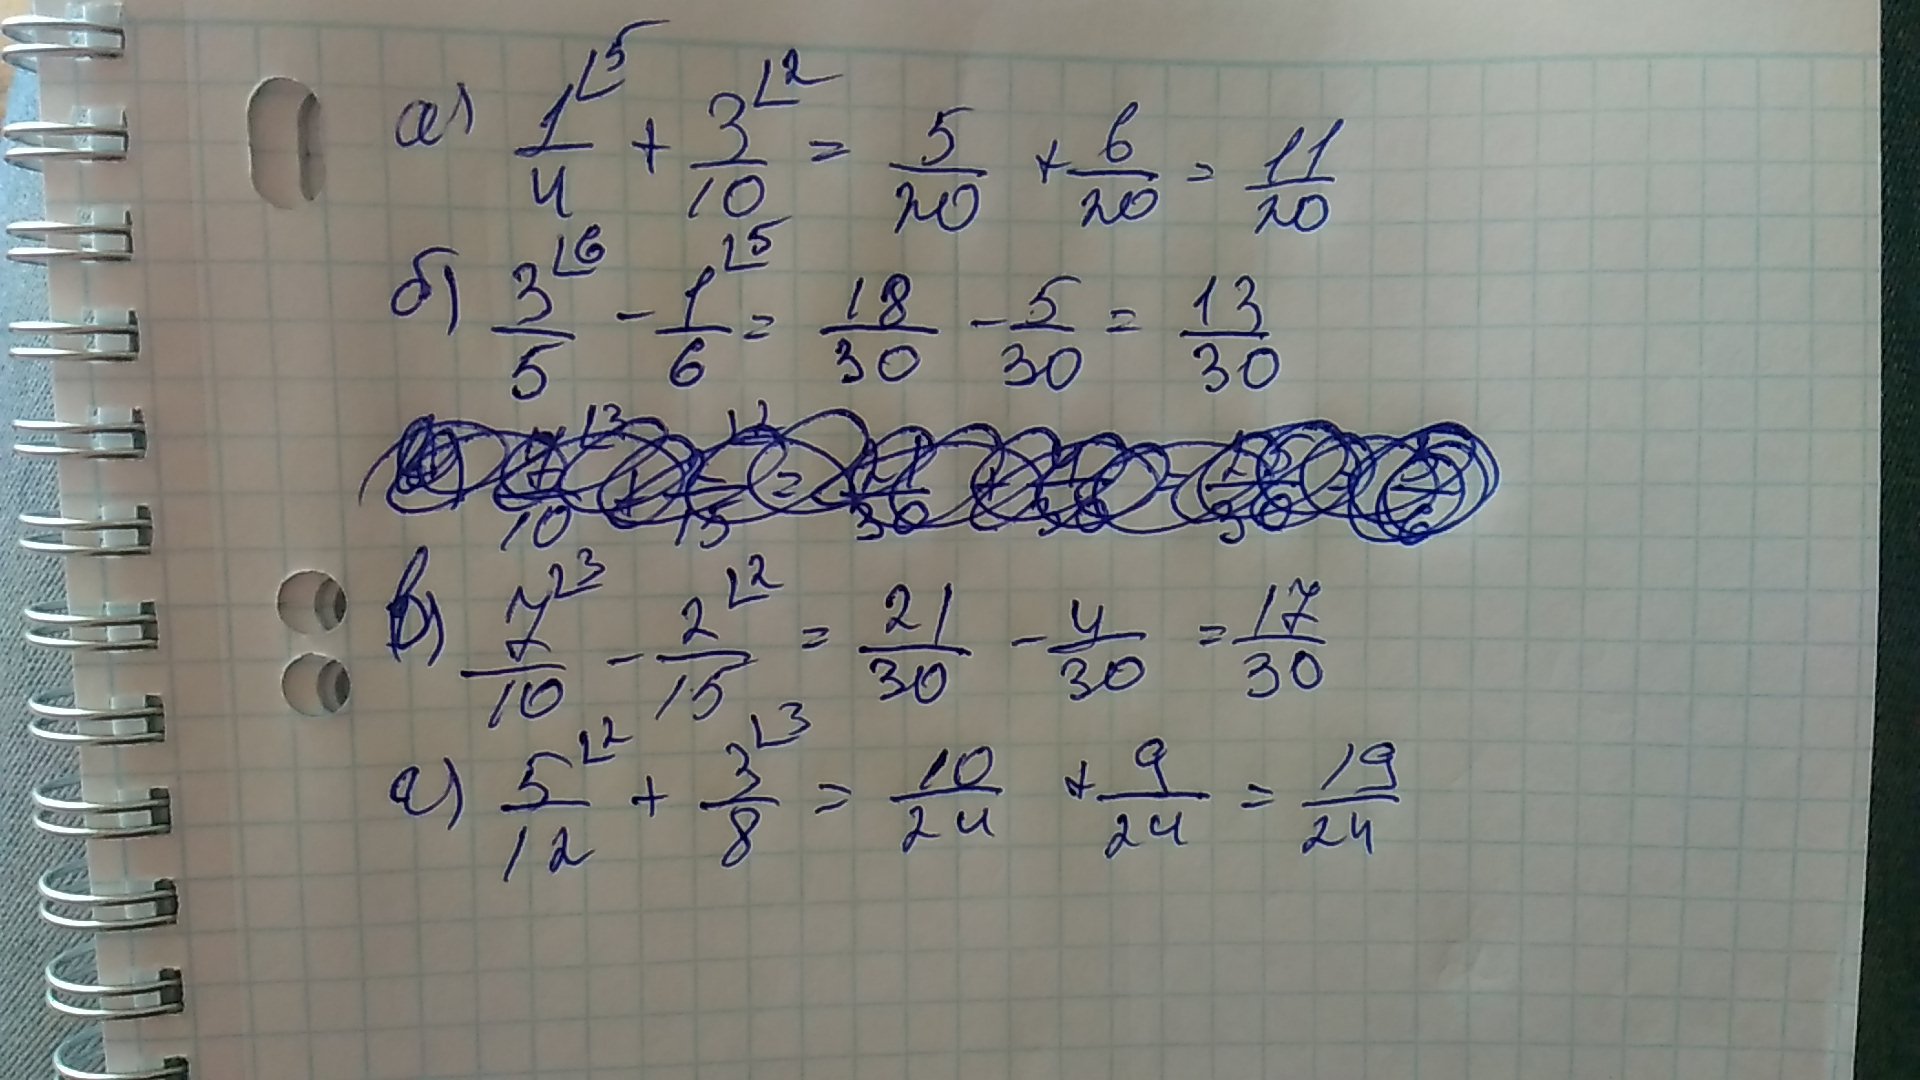 а) 1/4 ⌊5 + 3/10 ⌊2 = 5/20 + 6/20 = 11/20
б) 3/5 ⌊6 - 1/6 ⌊5 = 18/30 - 5/30 = 13/30
в) 7/10 ⌊3 - 2/15 ⌊2 = 21/30 - 4/30 = 17/30
г) 5/12 ⌊2 + 3/8 ⌊3 = 10/24 + 9/24 = 19/24